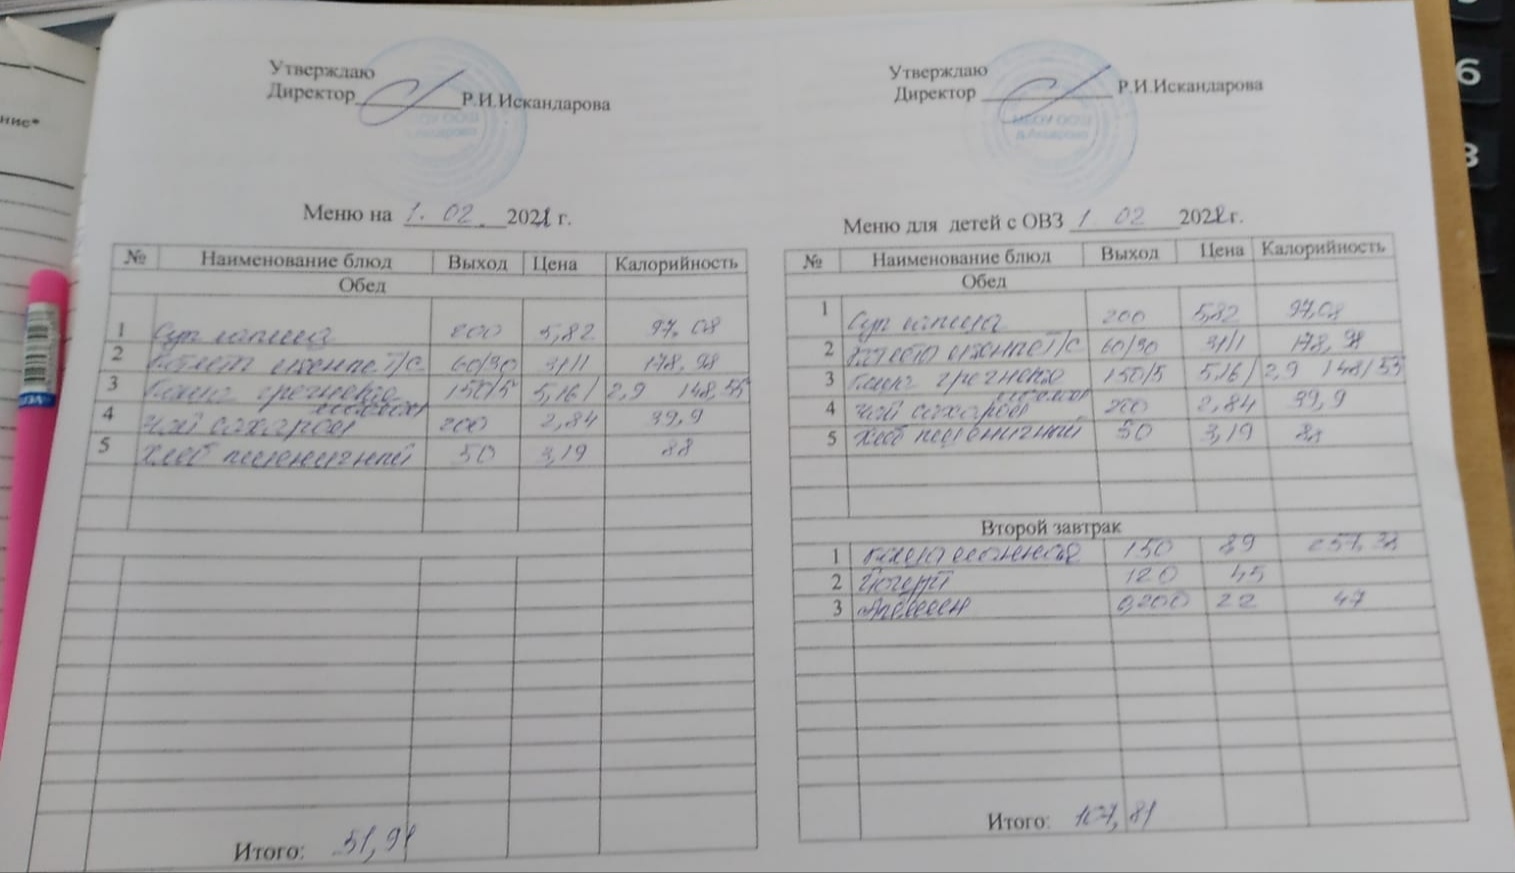 ние"
Утверждаю
Директор Р.И.Искандарова
Меню на 1. 02 2022 г.
№ Наименование блюд Выход Цена Калорийность
Обед
1 Суп лапша 200 5,82 97.08
2 Котлет мясные Т/С 60/30 31/1 178,98
3 Каша гречневая 150/5 5,16/2,9 148,55
4 Чай сахаром 200 2,84 39,9
5 Хлеб пшеничный 50 3,19 88
Итого: 51,91
Утверждаю
Директор Р.И.Искандарова
МБОУ ООШ
Меню для детей с ОВЗ 1 02 2022 г.
№ Наименование блюд Выход Цена Калорийность
Обед
1 Суп лапша 200 5,82 97,08
2 мясные Т/С 60/30 31/1 178,98
3 Каша гречневая 150/5 5,16/2,9 148/55
4 Чай сахаром 200 2,84 39,9
5 Хлеб пшеничный 50 3,19 88
Второй завтрак
1 Каша молочная 150
2 Йогурт 120
3 Апельсин 0,200 22 47
Итого: 107,81
6